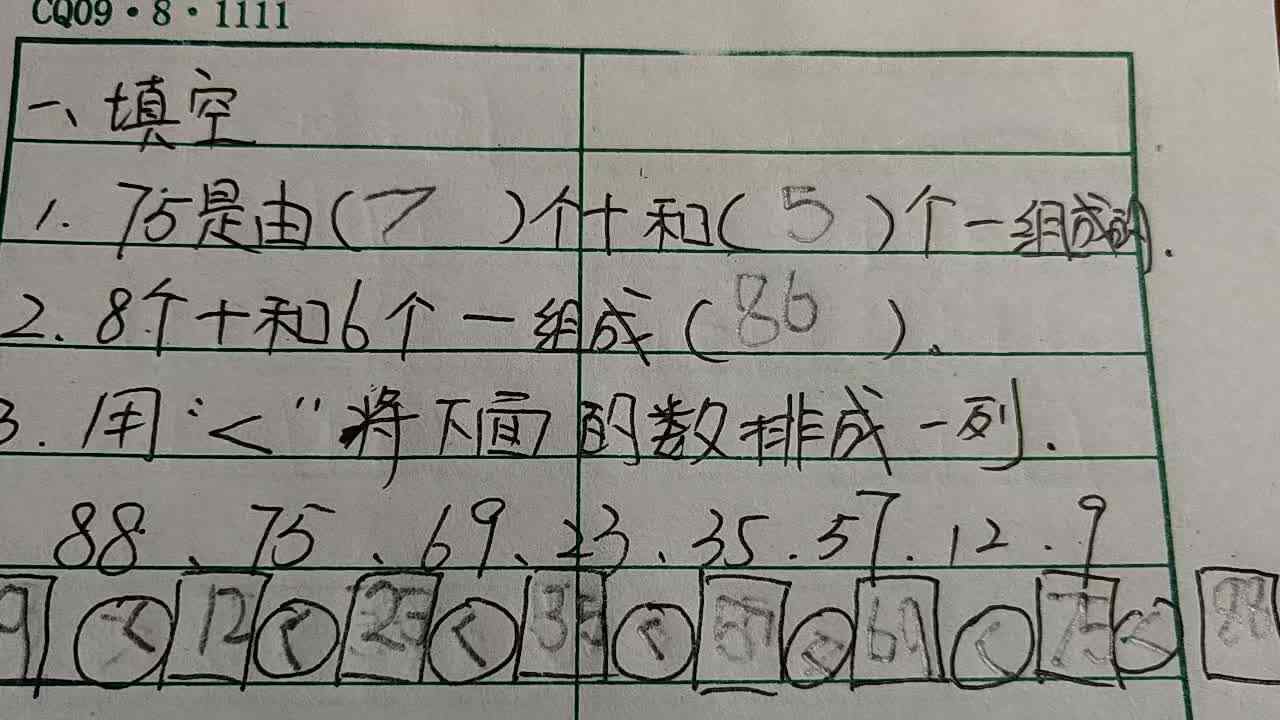 CQ09·8·1111
一、填空
1. 75是由(7)个十和(5)个一组成的.
2. 8个十和6个一组成(86)。
3. 用“<”将下面的数排成一列.
88、75、69、23、35.57.12.9
9<12<23<35<57<69<75<88